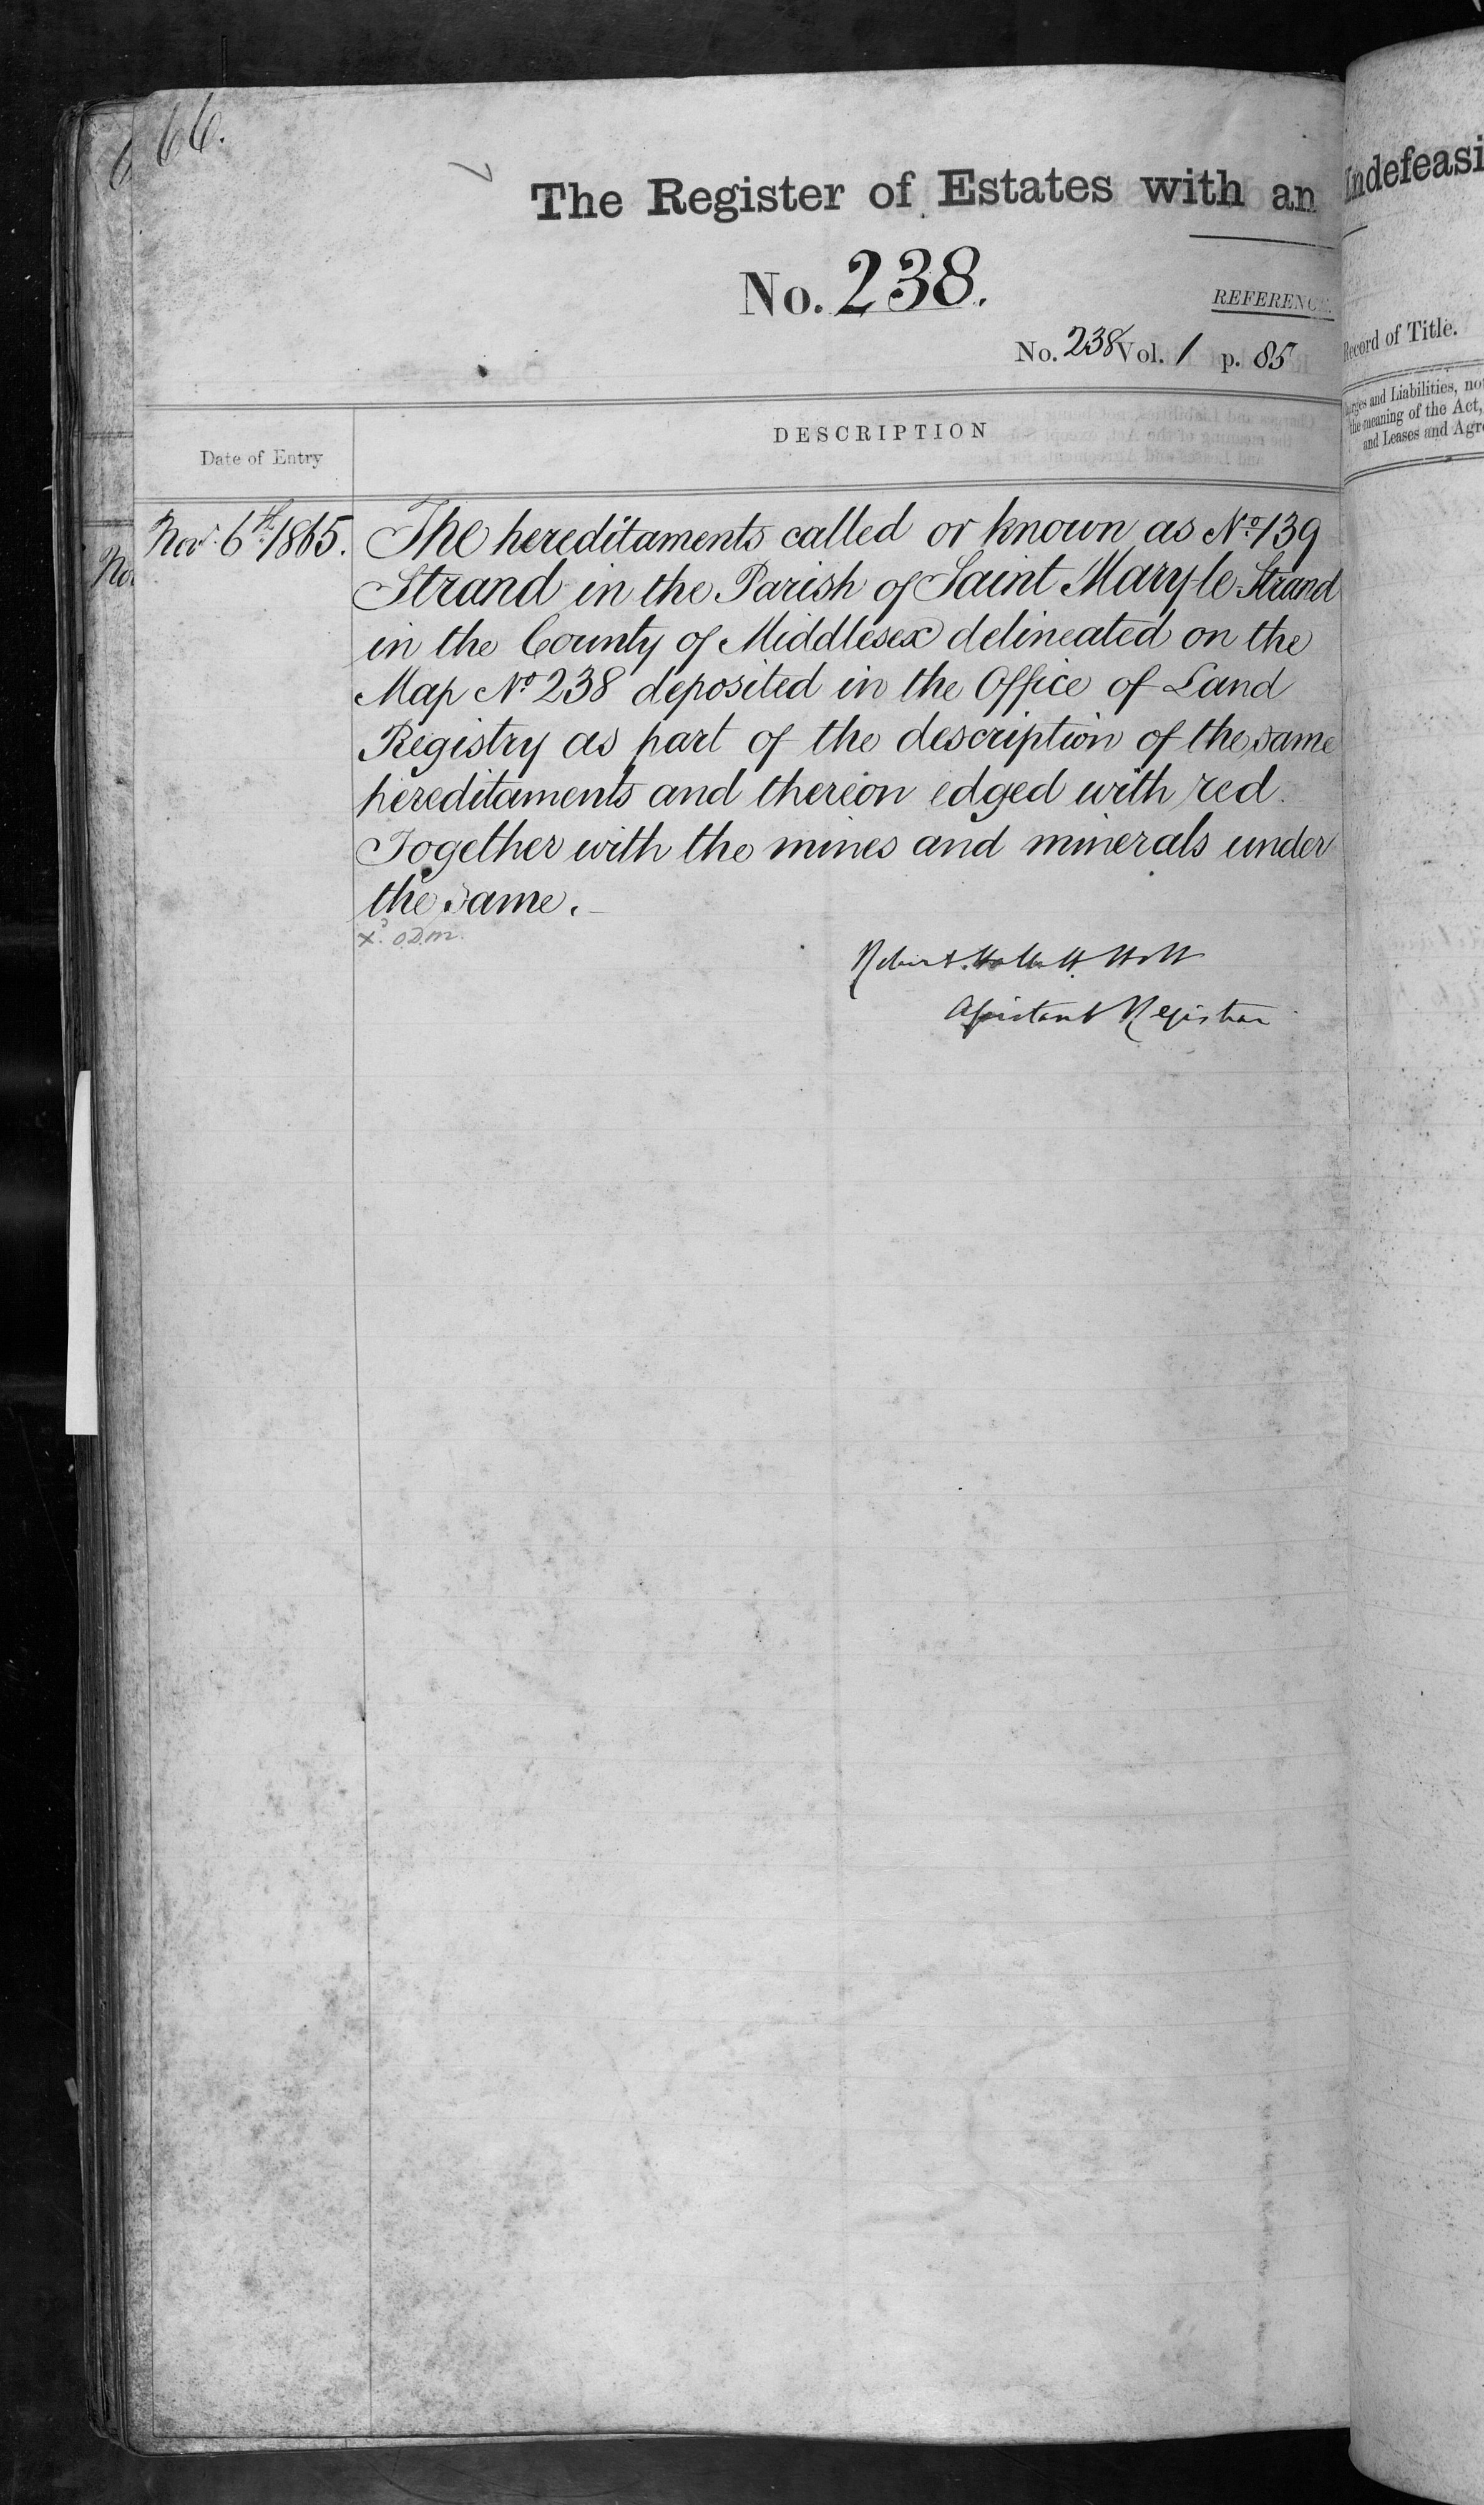 66.
The Register of Estates with an
No. 238.
REFERENC
No. 238 Vol. 1 p. 85
Date of Entry
DESCRIPTION
Novr. 6th. 1865.
The hereditaments called or known as No. 139
Strand in the Parish of Saint Mary-le-Strand
in the County of Middlesex delineated on the
Map No. 238 deposited in the Office of Land
Registry as part of the description of the same
hereditaments and thereon edged with red.
Together with the mines and minerals under
the same.
xd. O.D.M.
Robert Hallett Holt
Assistant Registrar
Indefeasi
Record of Title.
Charges and Liabilities, no
the meaning of the Act,
and Leases and Agre